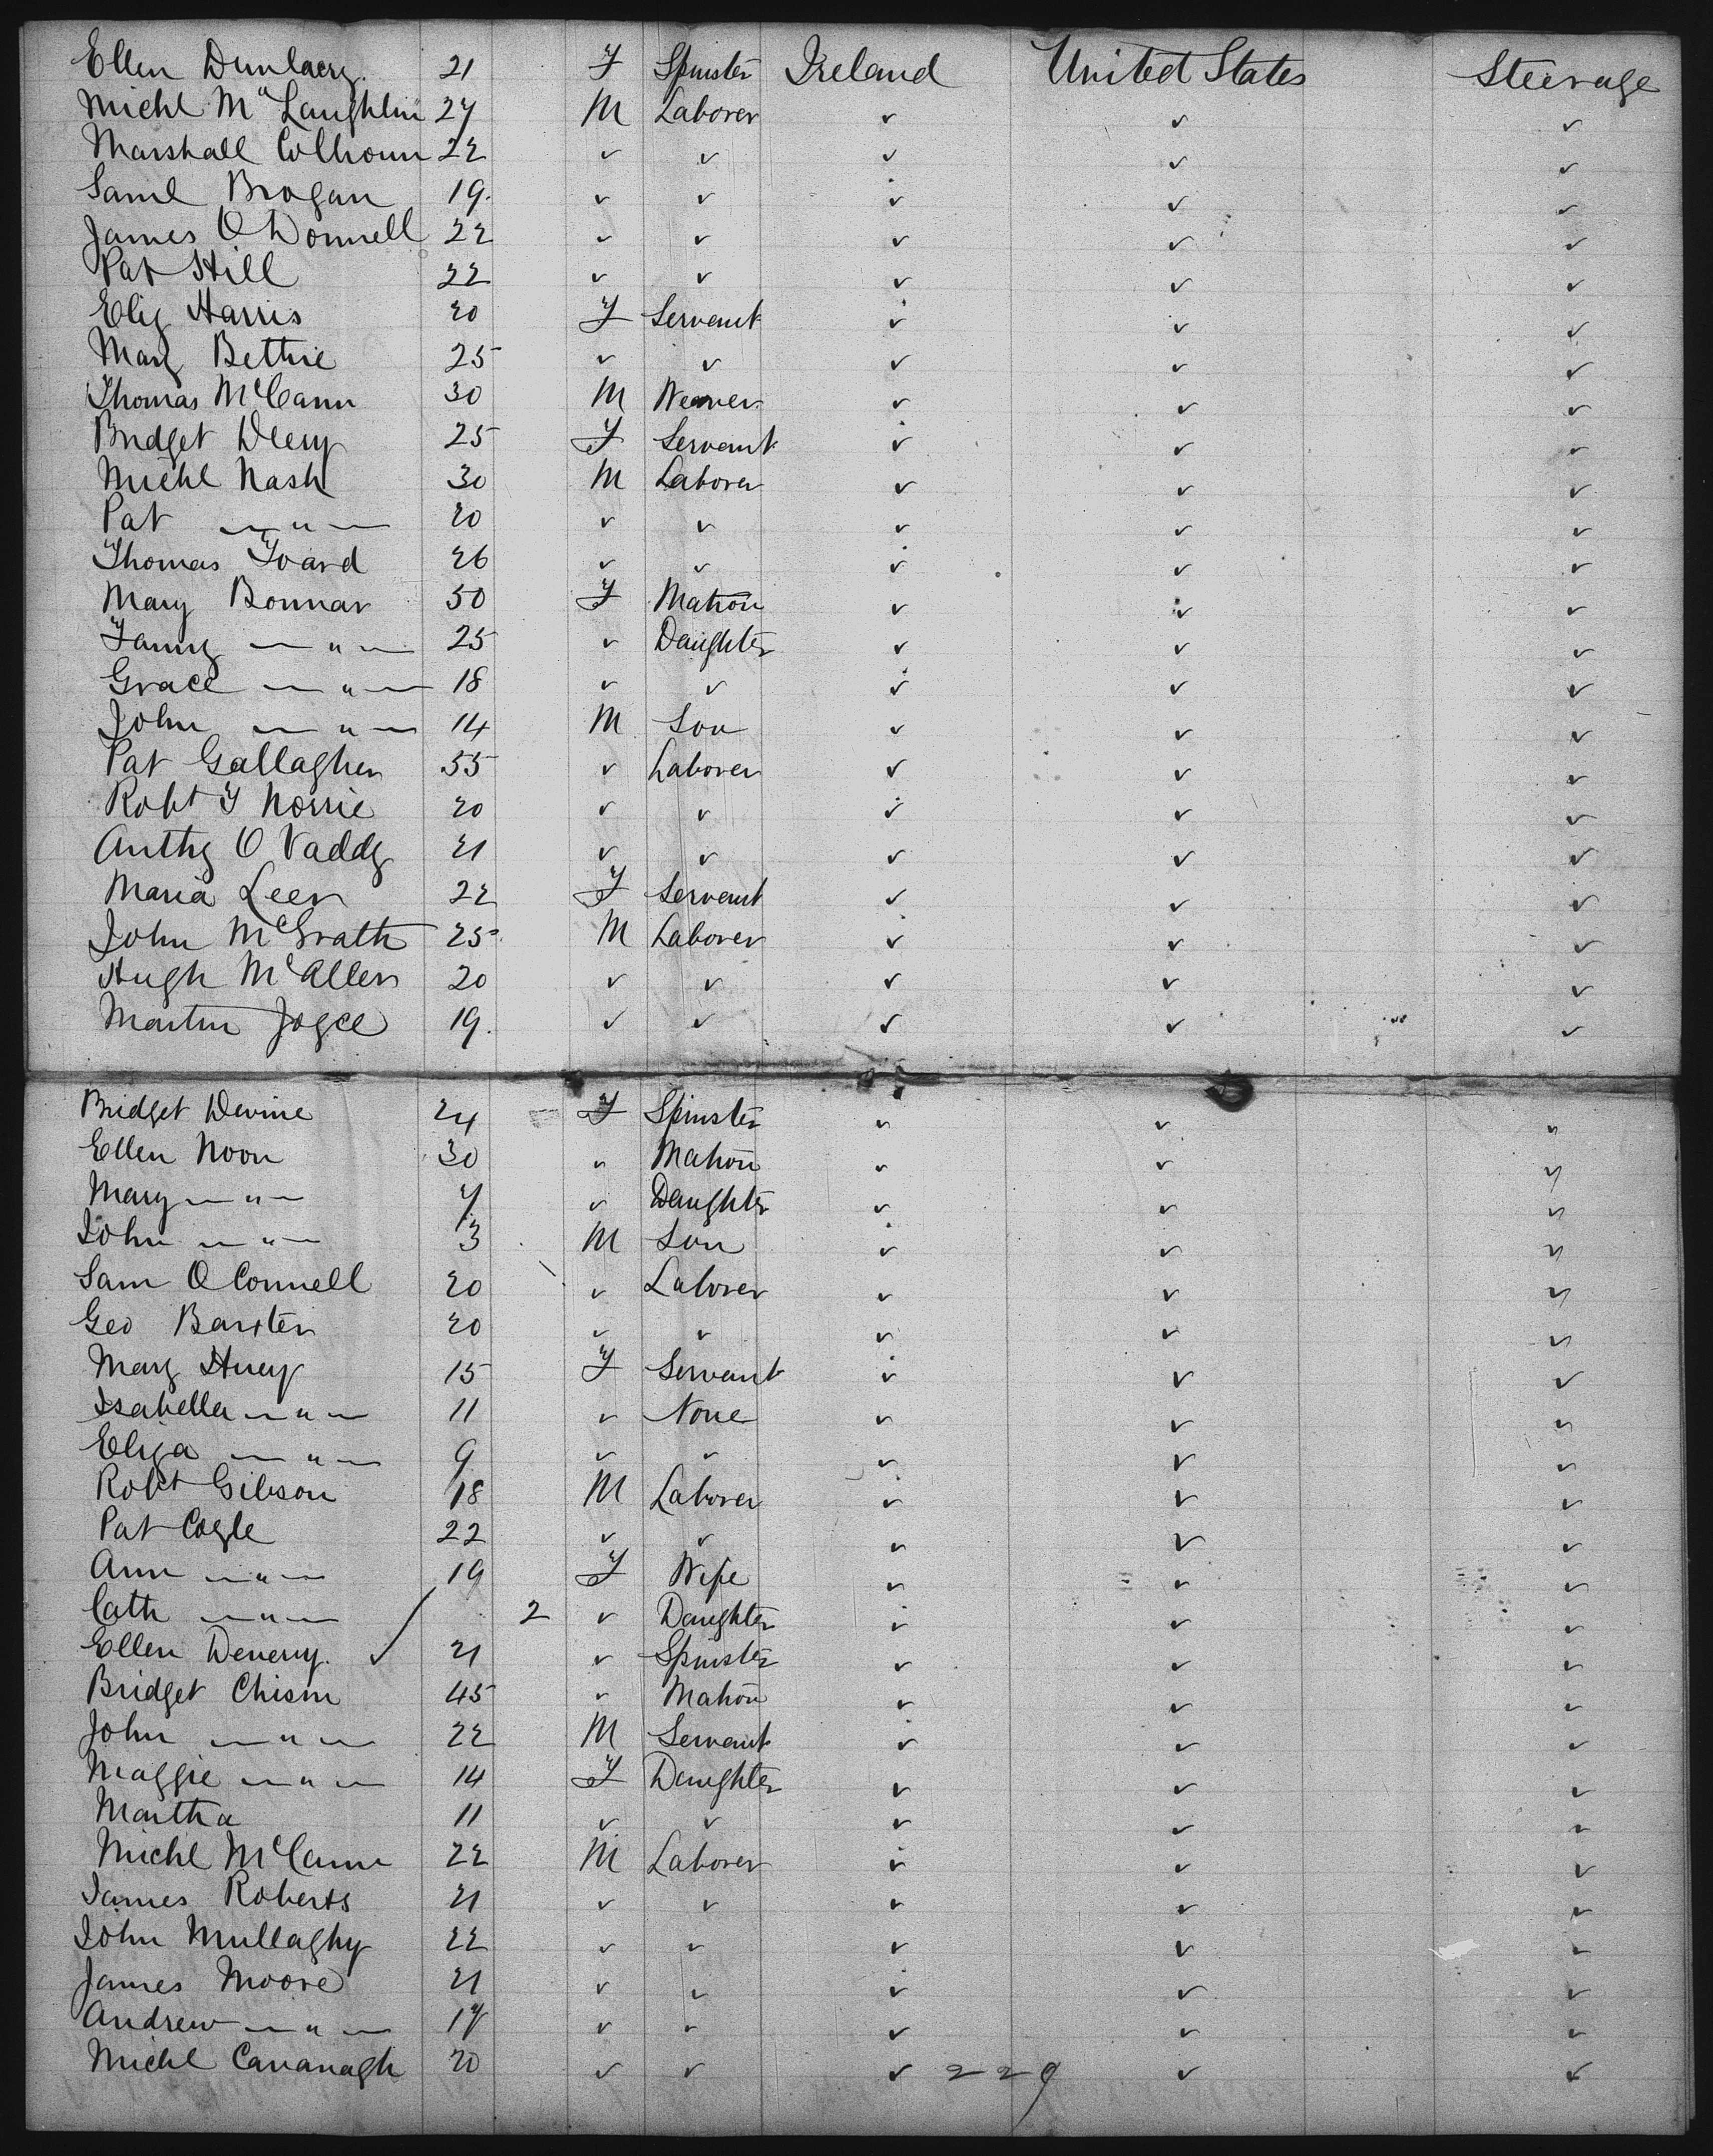 Ellen Dunlacey. 21 F Spinster Ireland United States Steerage
Michl McLaughlin 27 M Laborer ✓ ✓ ✓
Marshall Colhoun 22 ✓ ✓ ✓ ✓ ✓
Saml Brogan 19. ✓ ✓ ✓ ✓ ✓
James O Donnell 22 ✓ ✓ ✓ ✓ ✓
Pat Hill 22 ✓ ✓ ✓ ✓ ✓
Eliz Harris 20 F Servant ✓ ✓ ✓
Mary Bettie 25 ✓ ✓ ✓ ✓ ✓
Thomas McCann 30 M Weaver ✓ ✓ ✓
Bridget Deery 25 F Servant ✓ ✓ ✓
Michl Nash 30 M Laborer ✓ ✓ ✓
Pat — " — 20 ✓ ✓ ✓ ✓ ✓
Thomas 26 ✓ ✓ ✓ ✓ ✓
Mary Bonnar 50 F Matron ✓ ✓ ✓
Fanny — " — 25 ✓ Daughter ✓ ✓ ✓
Grace — " — 18 ✓ ✓ ✓ ✓ ✓
John — " — 14 M Son ✓ ✓ ✓
Pat Gallagher 55 ✓ Laborer ✓ ✓ ✓
Robt F Norrie 20 ✓ ✓ ✓ ✓ ✓
Anthy O Vaddy 21 ✓ ✓ ✓ ✓ ✓
Maria Leer 22 F Servant ✓ ✓ ✓
John McGrath 25 M Laborer ✓ ✓ ✓
Hugh McAllen 20 ✓ ✓ ✓ ✓ ✓
Martin Joyce 19. ✓ ✓ ✓ ✓ ✓
Bridget Devine 24 F Spinster ✓ ✓ "
Ellen Noon 30 " Matron ✓ ✓ "
Mary — " — 7 ✓ Daughter ✓ ✓ "
John — " — 3 M Son ✓ ✓ "
Sam O Connell 20 ✓ Laborer ✓ ✓ "
Geo Barxter 20 ✓ ✓ ✓ ✓ "
Mary Huey 15 F Servant ✓ ✓ ✓
Isabella — " — 11 ✓ None ✓ ✓ ✓
Eliza — " — 9 ✓ ✓ ✓ ✓ ✓
Robt Gibson 18 M Laborer ✓ ✓ ✓
Pat Cogle 22 ✓ ✓ ✓ ✓ ✓
Ann — " — 19 F Wife ✓ ✓ ✓
Cath — " — 2 ✓ Daughter ✓ ✓ ✓
Ellen Denery. ✓ 21 ✓ Spinster ✓ ✓ ✓
Bridget Chism 45 ✓ Matron ✓ ✓ ✓
John — " — 22 M Servant ✓ ✓ ✓
Maggie — " — 14 F Daughter ✓ ✓ ✓
Martha 11 ✓ ✓ ✓ ✓ ✓
Michl McCann 22 M Laborer ✓ ✓ ✓
James Roberts 21 ✓ ✓ ✓ ✓ ✓
John Mullaghy 22 ✓ ✓ ✓ ✓ ✓
James Moore 21 ✓ ✓ ✓ ✓ ✓
Andrew — " — 17 ✓ ✓ ✓ ✓ ✓
Michl Cavanagh 20 ✓ ✓ ✓ 229 ✓ ✓